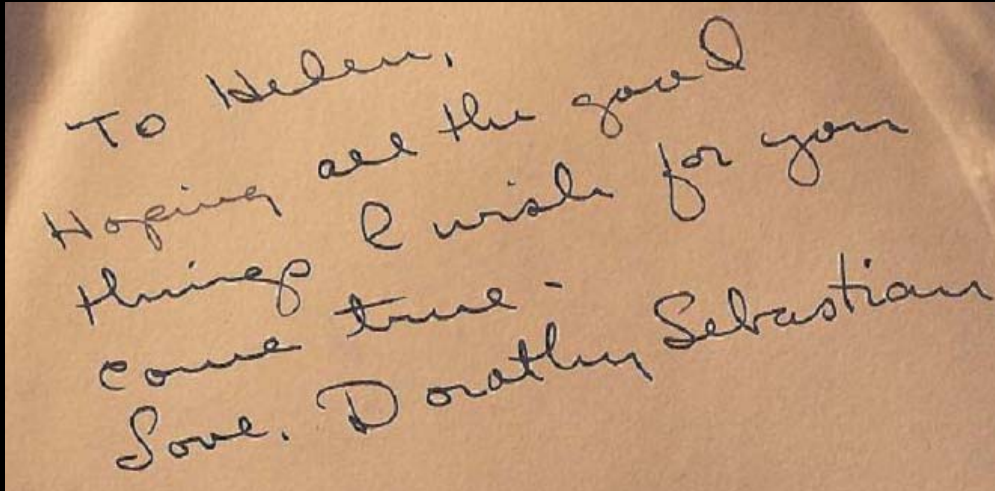 To Helen,
Hoping all the good
things I wish for you
come true -
Love, Dorothy Sebastian